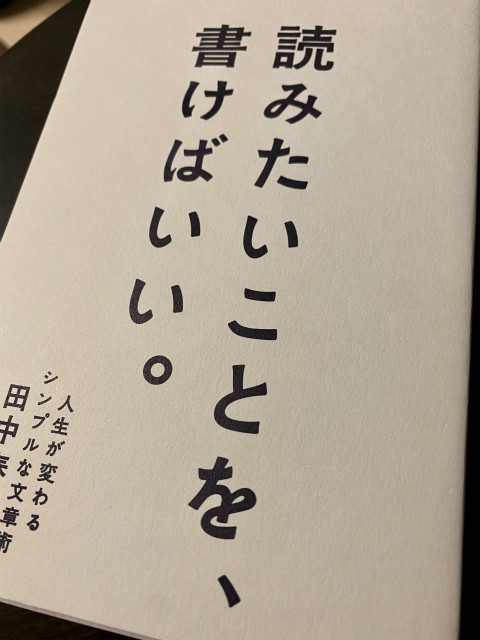 読みたいことを、
書けばいい。
人生が変わる
シンプルな文章術
田中